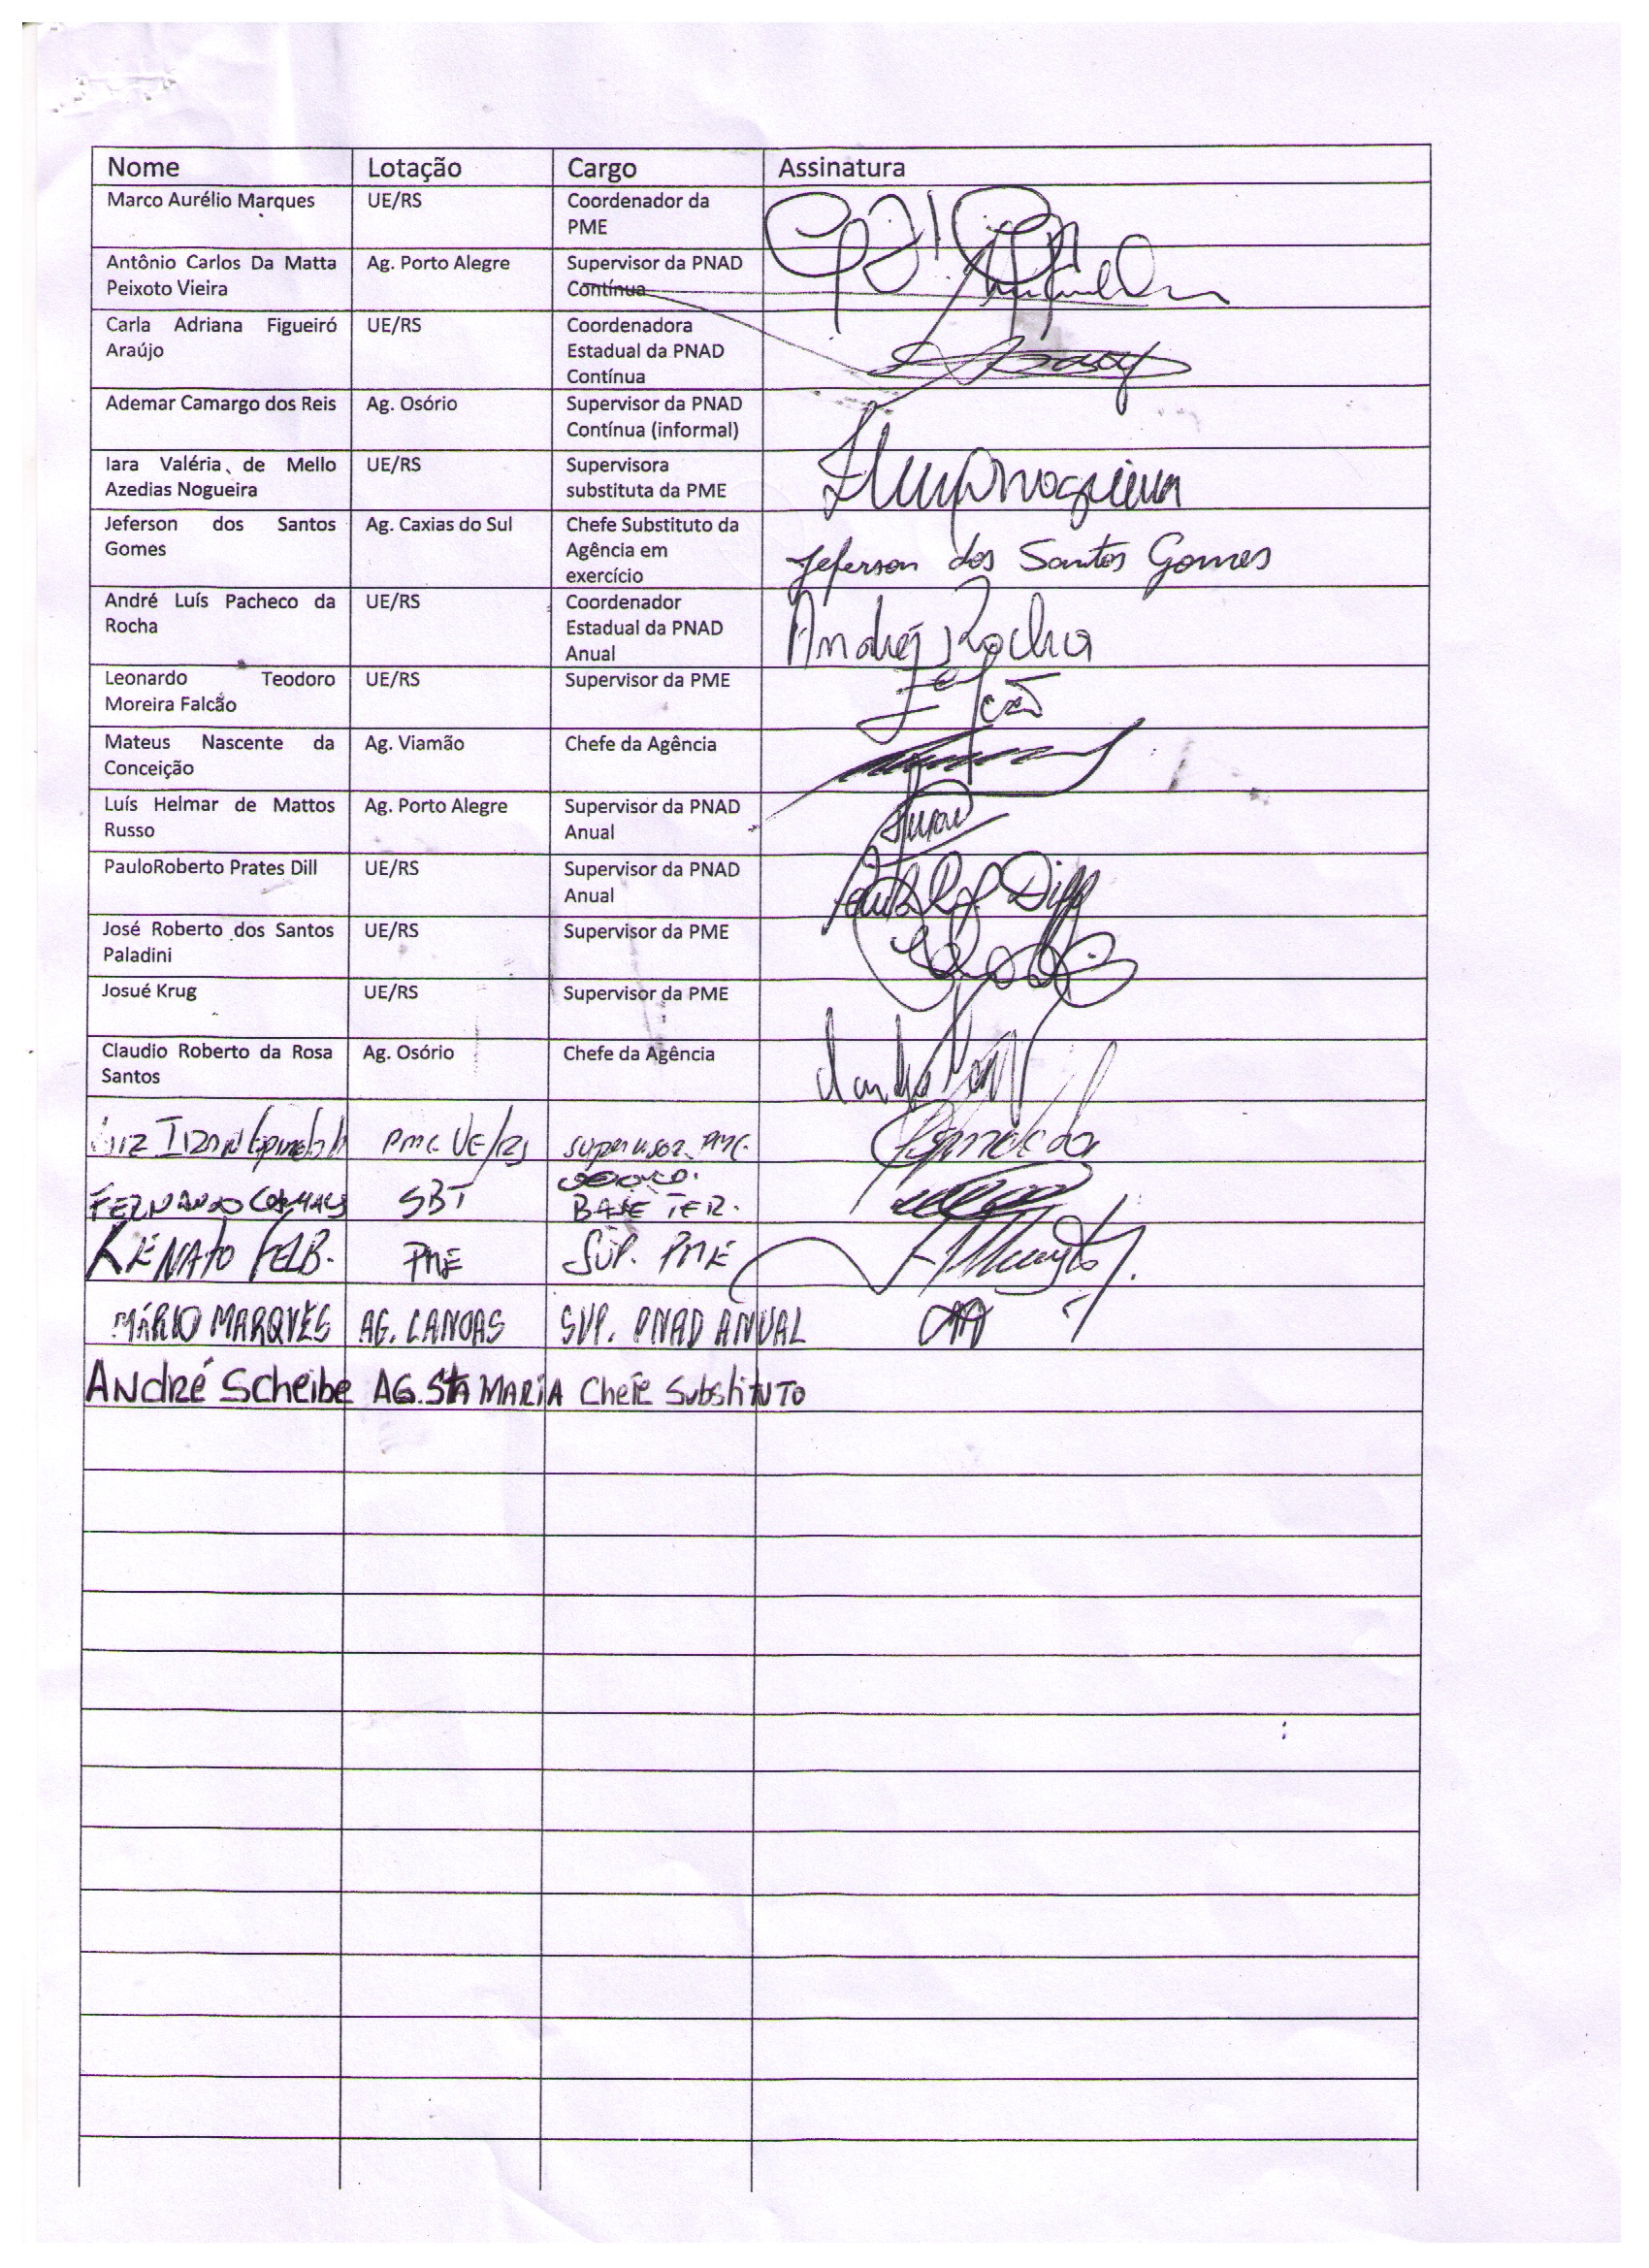 Nome Lotação Cargo Assinatura
Marco Aurélio Marques UE/RS Coordenador da
PME
Antônio Carlos Da Matta Ag. Porto Alegre Supervisor da PNAD
Peixoto Vieira Contínua
Carla Adriana Figueiró UE/RS Coordenadora
Araújo Estadual da PNAD
Contínua
Ademar Camargo dos Reis Ag. Osório Supervisor da PNAD
Contínua (informal)
Iara Valéria de Mello UE/RS Supervisora
Azedias Nogueira substituta da PME
Jeferson dos Santos Ag. Caxias do Sul Chefe Substituto da
Gomes Agência em Jeferson dos Santos Gomes
exercício
André Luís Pacheco da UE/RS Coordenador
Rocha Estadual da PNAD André Rocha
Anual
Leonardo Teodoro UE/RS Supervisor da PME
Moreira Falcão
Mateus Nascente da Ag. Viamão Chefe da Agência
Conceição
Luís Helmar de Mattos Ag. Porto Alegre Supervisor da PNAD
Russo Anual
PauloRoberto Prates Dill UE/RS Supervisor da PNAD
Anual Dill
José Roberto dos Santos UE/RS Supervisor da PME
Paladini
Josué Krug UE/RS Supervisor da PME
Claudio Roberto da Rosa Ag. Osório Chefe da Agência
Santos
PMC UE/RS supervisor PMC
FERNANDO SBT BASE TER.
RENATO FELB. PME SUP. PME
MÁRIO MARQUES AG. CANOAS SUP. PNAD ANUAL
André Scheibe AG. STA MARIA Chefe Substituto